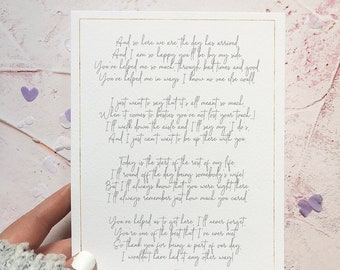 And so here we are the day has arrived
And I am so happy you'll be by my side
You've helped me so much through bad times and good
You've helped me in ways I know no one else could

I just want to say that it's all meant so much
When it comes to besties you've not lost your touch!
I'll walk down the aisle and I'll say my 'I do's,
And I just can't wait to be up there with you

Today is the start of the rest of my life
I'll round off the day being somebody's wife!
But I'll always know that you were right here
I'll always remember just how much you cared

You've helped us to get here, I'll never forget
You're one of the best that I've ever met
So thank you for being a part of our day
I wouldn't have had it any other way!